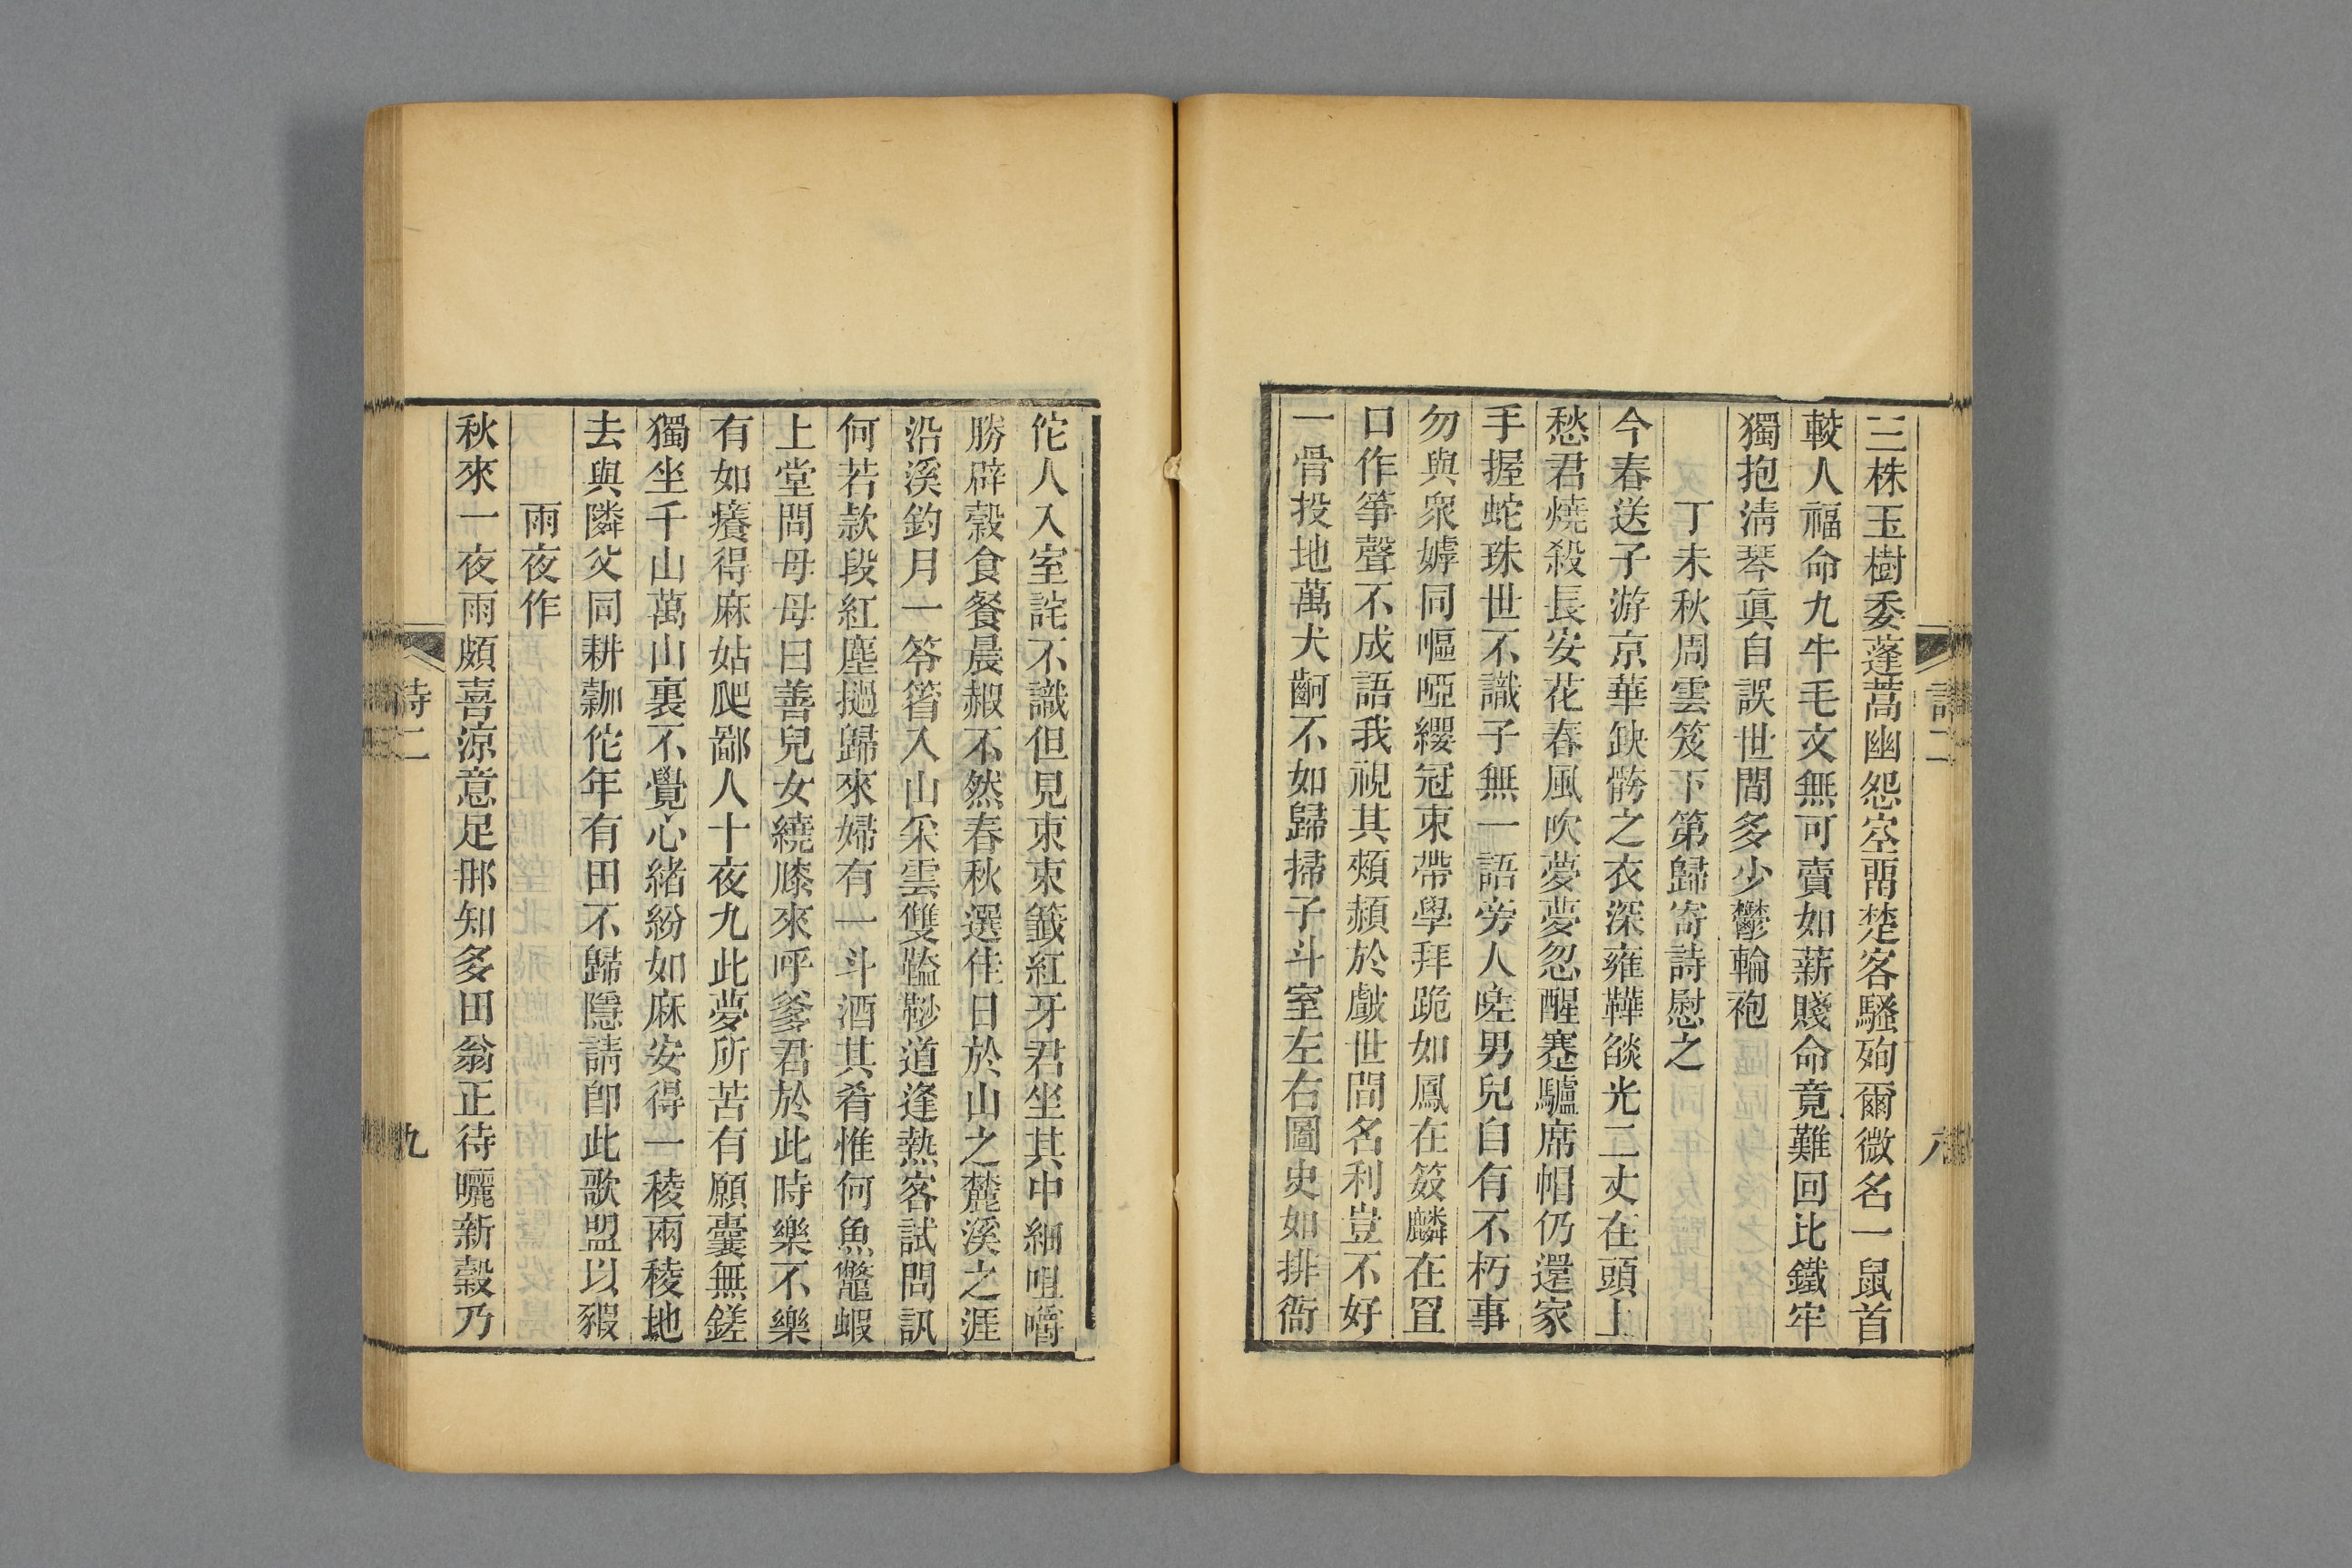 三株玉樹委蓬蒿幽怨空啚楚客騷殉爾微名一鼠首
較人福命九牛毛文無可賣如薪賤命竟難回比鐵牢
獨抱淸琴眞自誤世間多少鬱輪袍
丁未秋周雲笈下第歸寄詩慰之
今春送子游京華鈌骻之衣深雍鞾燄光二丈在頭上
愁君燒殺長安花春風吹夢夢忽醒蹇驢席帽仍還家
手握蛇珠世不識子無一語旁人嗟男兒自有不朽事
勿與衆嫭同嘔啞纓冠束帶學拜跪如鳳在笯麟在罝
口作箏聲不成語我視其頰頳於戱世間名利豈不好
一骨投地萬犬齣不如歸掃子斗室左右圖史如排衙
詩二
八
佗人入室詫不識但見朿朿籤紅牙君坐其中細咀嚼
勝辟穀食餐晨赮不然春秋選佳日於山之麓溪之涯
沿溪釣月一笭箵入山采雲雙䪞䩖道逢熱客試問訊
何若款段紅塵撾歸來婦有一斗酒其肴惟何魚鼈蝦
上堂問母母曰善兒女繞膝來呼爹君於此時樂不樂
有如癢得麻姑爬鄙人十夜九此夢所苦有願囊無鎈
獨坐千山萬山裏不覺心緖紛如麻安得一稜兩稜地
去與隣父同耕耞佗年有田不歸隱請卽此歌盟以豭
雨夜作
秋來一夜雨頗喜涼意足那知多田翁正待曬新穀乃
詩二
九